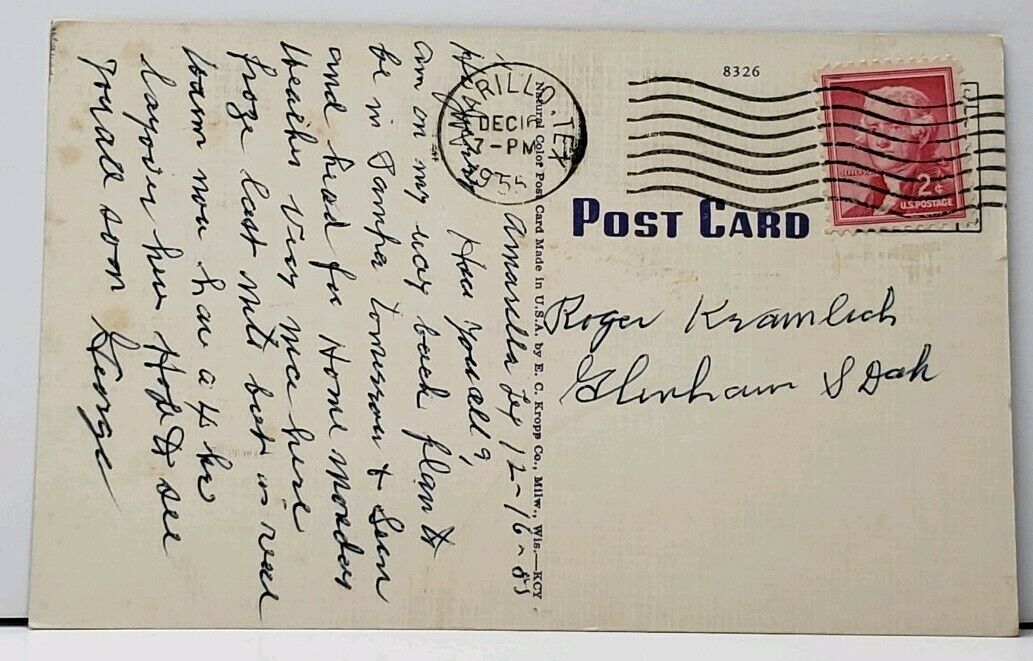 8326
RILLO, TEX
DEC 16
7-PM
1955
2¢
U.S. POSTAGE
POST CARD
Natural Color Post Card Made in U.S.A. by E. C. Kropp Co., Milw., Wis.—KCY
Amarilla Tex 12-16-55
How you all,
am on my way back plan to
be in Pampa tomorrow & Sun
and head for Home Monday
Weather Very nice here
froze last nit but is real
warm now have a 4 hr
layover here to see
you all soon George
Roger Kramlich
Glenham S Dak